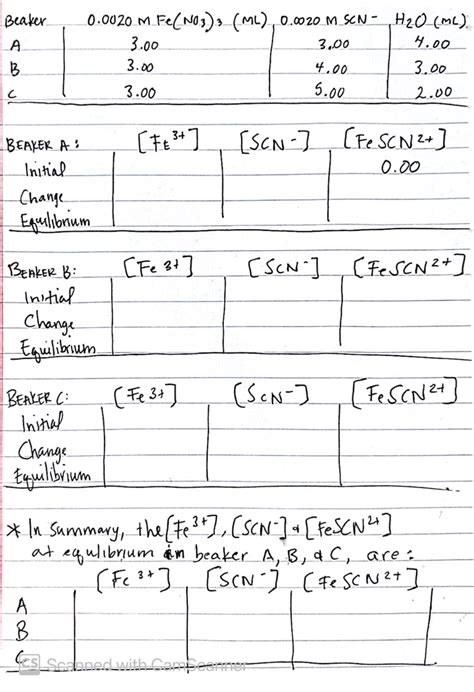 Beaker 0.0020 M Fe(NO3)3 (mL) 0.0020 M SCN- H2O (mL)
A 3.00 3.00 4.00
B 3.00 4.00 3.00
C 3.00 5.00 2.00
BEAKER A: [Fe3+] [SCN-] [FeSCN2+]
Initial 0.00
Change
Equilibrium
BEAKER B: [Fe3+] [SCN-] [FeSCN2+]
Initial
Change
Equilibrium
BEAKER C: [Fe3+] [SCN-] [FeSCN2+]
Initial
Change
Equilibrium
* In Summary, the [Fe3+], [SCN-] & [FeSCN2+]
at equlibrium in beaker A, B, & C, are:
[Fe3+] [SCN-] [FeSCN2+]
A
B
C
CS Scanned with CamScanner